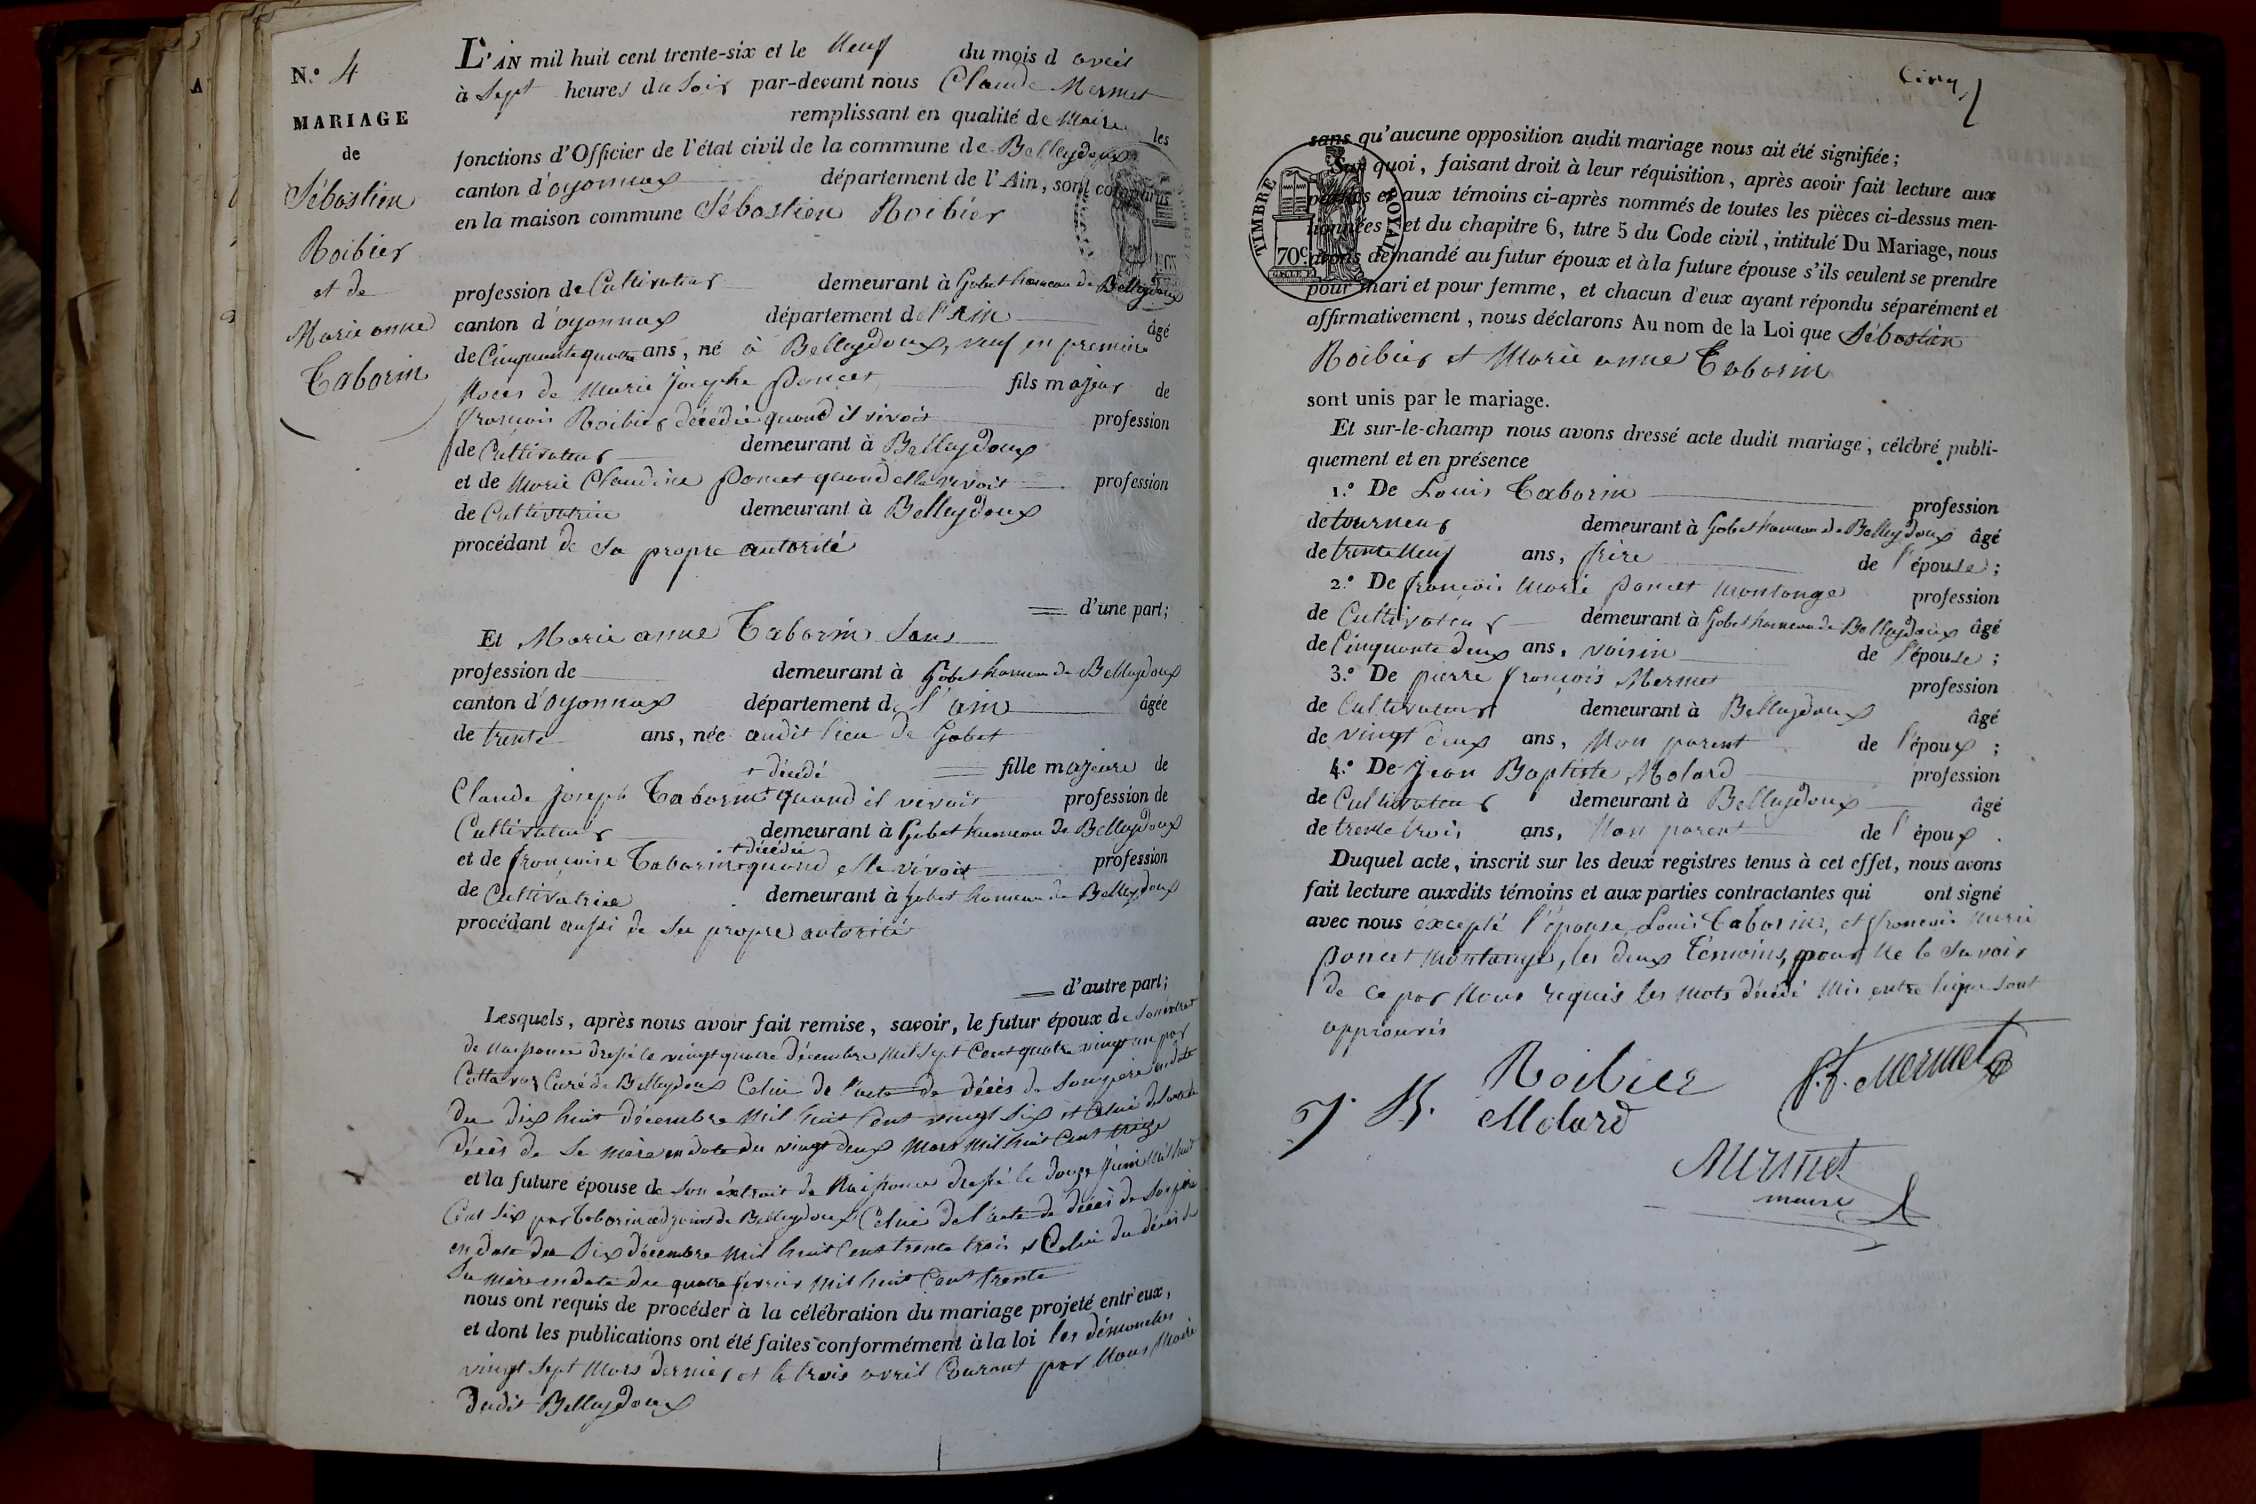 N.° 4
MARIAGE
de
Sébastien
Roibier
et de
Marie anne
Taborin
L'AN mil huit cent trente-six et le Neuf du mois d avril
à Sept heures du Soir par-devant nous Claude Mermet
remplissant en qualité de Maire les
fonctions d'Officier de l'état civil de la commune de Belleydoux
canton d'oyonnax département de l'Ain, sont comparus
en la maison commune Sébastien Roibier
profession de Cultivateur demeurant à Gobet hameau de Belleydoux
canton d'oyonnax département de l'Ain âgé
de Cinquante quatre ans, né à Belleydoux, veuf en premiere
Noces de Marie Josephe Poncet fils majeur de
françois Roibier décédé quand il vivoit profession
de Cultivateur demeurant à Belleydoux
et de Marie Claudine Poncet quand elle vivoit profession
de Cultivatrice demeurant à Belleydoux
procédant de sa propre autorité
d'une part;
Et Marie anne Taborin Sans
profession de demeurant à Gobet hameau de Belleydoux
canton d'oyonnax département de l'ain âgée
de trente ans, née audit lieu de Gobet
+ décédé fille majeure de
Claude Joseph Taborin + quand il vivoit profession de
Cultivateur demeurant à Gobet hameau de Belleydoux
+ décédée
et de françoise Taborin + quand elle vivoit profession
de Cultivatrice demeurant à Gobet hameau de Belleydoux
procédant aussi de sa propre autorité
d'autre part;
Lesquels, après nous avoir fait remise, savoir, le futur époux de son extrait
de Naissance dressé le vingt quatre décembre mil sept Cent quatre vingt un par
Curé de Belleydoux Celui de l'acte de décès de son père en date
du dix huit décembre mil huit Cent vingt six et Celui de l'acte de
décès de Sa mère en date du vingt deux Mars mil huit Cent treize
et la future épouse de Son extrait de Naissance dressé le douze Juin mil huit
Cent Six par Taborin adjoint de Belleydoux Celui de l'acte de décès de Son père
en date du Six décembre Mil huit Cent trente trois et Celui du décès de
Sa mère en date du quatre février Mil huit Cent trente
nous ont requis de procéder à la célébration du mariage projeté entr'eux,
et dont les publications ont été faites conformément à la loi les dimanches
vingt Sept Mars dernier et le trois avril Courant par Nous Maire
dudit Belleydoux
Cinq
TIMBRE ROYAL
70c.
sans qu'aucune opposition audit mariage nous ait été signifiée;
Sur quoi, faisant droit à leur réquisition, après avoir fait lecture aux
parties et aux témoins ci-après nommés de toutes les pièces ci-dessus men-
tionnées et du chapitre 6, titre 5 du Code civil, intitulé Du Mariage, nous
avons demandé au futur époux et à la future épouse s'ils veulent se prendre
pour mari et pour femme, et chacun d'eux ayant répondu séparément et
affirmativement, nous déclarons Au nom de la Loi que Sébastien
Roibier et Marie anne Taborin
sont unis par le mariage.
Et sur-le-champ nous avons dressé acte dudit mariage, célébré publi-
quement et en présence
1.° De Louis Taborin profession
de tourneur demeurant à Gobet hameau de Belleydoux âgé
de trente Neuf ans, frère de l'épouse;
2.° De françois Marie Poncet Montange profession
de Cultivateur demeurant à Gobet hameau de Belleydoux âgé
de Cinquante deux ans, voisin de l'épouse;
3.° De pierre françois Mermet profession
de Cultivateur demeurant à Belleydoux âgé
de vingt deux ans, Non parent de l'époux;
4.° De Jean Baptiste Molard profession
de Cultivateur demeurant à Belleydoux âgé
de trente trois ans, Non parent de l'époux.
Duquel acte, inscrit sur les deux registres tenus à cet effet, nous avons
fait lecture auxdits témoins et aux parties contractantes qui ont signé
avec nous excepté l'épouse, Louis Taborin, et françois Marie
Poncet Montange, les deux Témoins, pour Ne le Savoir
de Ce par Nous requis les Mots décédé Mis entre ligne sont
approuvés
Roibier P. F. Mermet
J. B. Molard
Mermet
maire